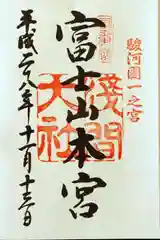 駿河國一之宮
富士山本宮
淺間
大社
平成二八年十一月十三日